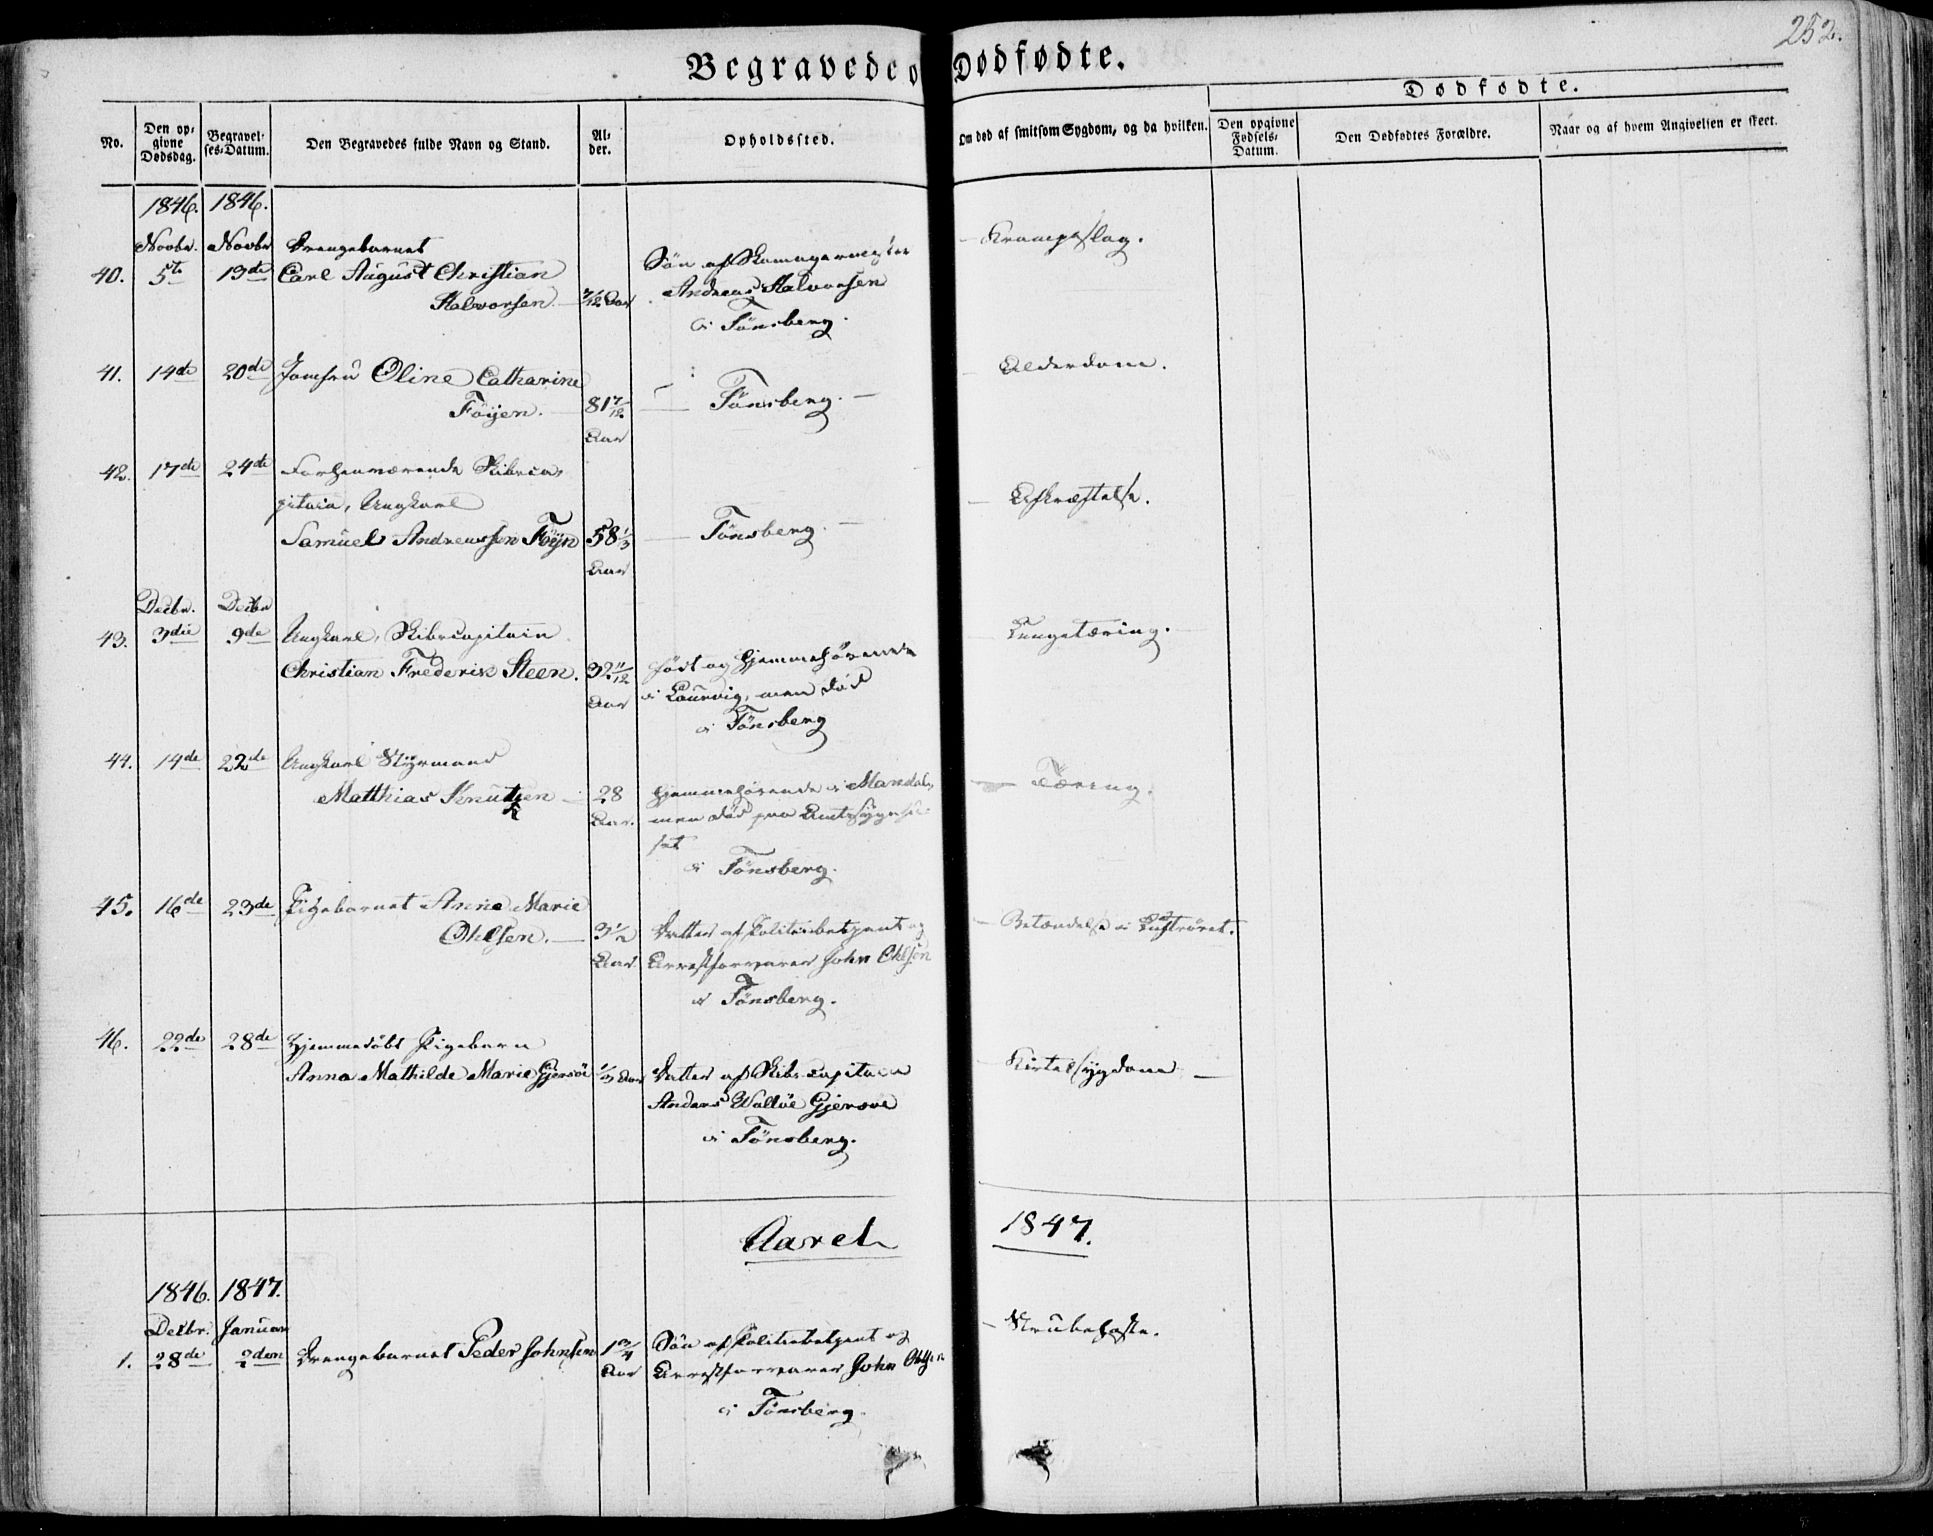 252.
Begravede o Dødfødte.
Dødfødte.
No.
Den op-
givne
Dødsdag.
Begravel-
ses-Datum.
Den Begravedes fulde Navn og Stand.
Al-
der.
Opholdssted.
Om død af smitsom Sygdom, og da hvilken.
Den opgivne
Fødsels-
Datum.
Den Dødfødtes Forældre.
Naar og af hvem Angivelsen er skeet.
1846. 1846.
Novbr. Novbr Drengebarnet
40. 5te 13de Carl August Christian
Halvorsen. 7/12 Aar
Søn af Skomagermester
Andreas Halvorsen
i Tönsberg.
Krampeslag.
41. 14de 20de Jomfru Oline Catharine
Föyen. 81 7/12
Aar
Tönsberg.
Alderdom.
42. 17de 24de Forhenværende Skibsca-
pitain, Ungkarl
Samuel Andreassen Föyn 58 1/3
Aar
Tönsberg.
Afkræftelse.
Decbr. Decbr
43. 3die 9de Ungkarl, Skibscapitain
Christian Frederik Steen. 32 11/12
Aar
født og hjemmehörende
i Laurvig, men död
i Tönsberg
Lungetæring.
44. 14de 22de Ungkarl Styrmand
Matthias Knutzen 28
Aar.
hjemmehörende i Mandal,
men död paa Amtssygehu-
set
i Tönsberg.
Tæring.
45. 16de 23de Pigebarnet Anne Marie
Ohlsen. 3 1/2
Aar
Datter af Politiebetjent og
Arrestforvarer John Ohlsen
i Tönsberg.
Betændelse i Luftröret.
46. 22de 28de Hjemmedöbt Pigebarn
Anna Mathilde Marie Gjersöe 1/3 Aar
Datter af Skibscapitain
Anders Walløe Gjersøe
i Tönsberg.
Kirtelsygdom
Aaret 1847.
1846. 1847.
Decbr. Januar
1. 28de 2den Drengebarnet Peder Johnsen 1 3/4
Aar
Søn af Politiebetjent og
Arrestforvarer John Ohlsen
i Tönsberg.
Strubehoste.